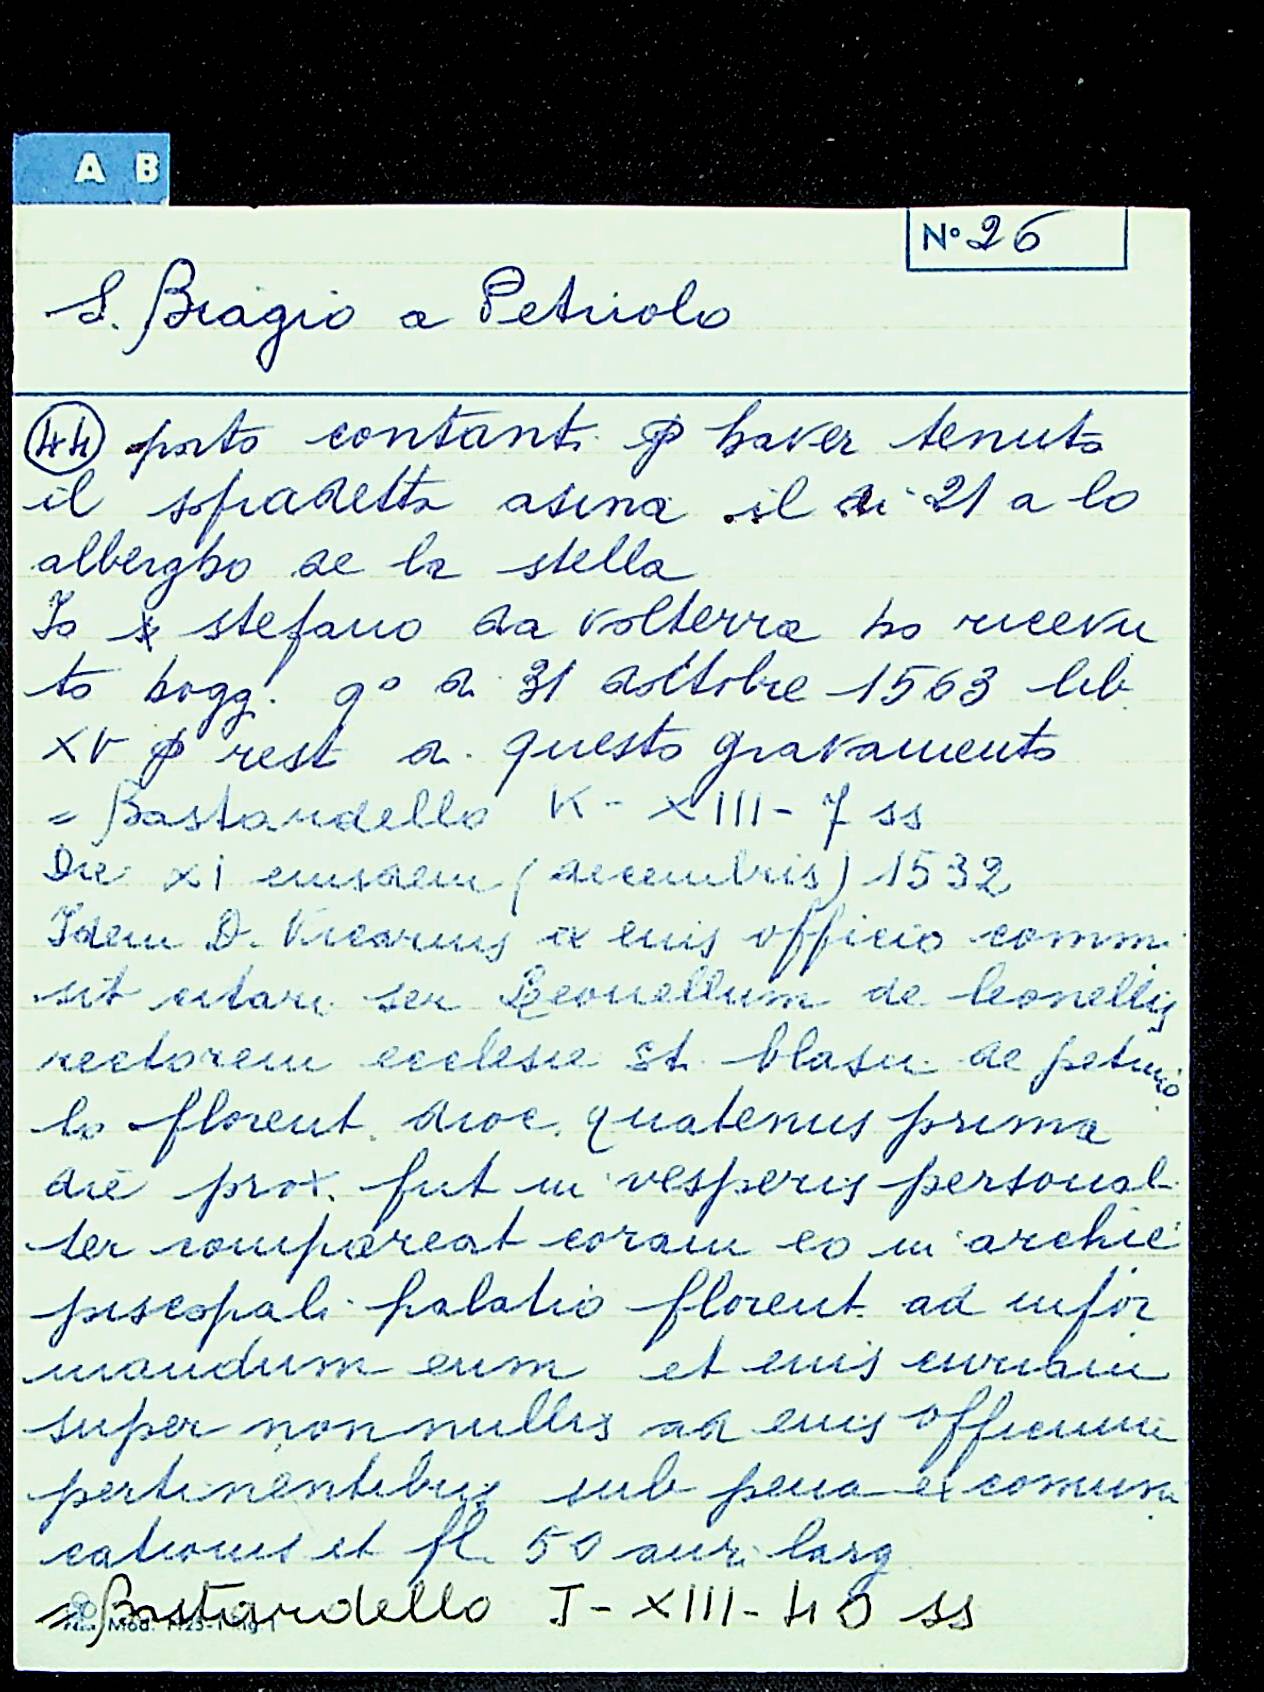 A B
Nº 26
S. Biagio a Petriolo
44 porto contanti p haver tenuto
il sopradetto asina il di 21 a lo
albergho de la stella
Io stefano da volterra ho ricevu
to hogg. qº di 31 dottobre 1563 lib
XV p rest di questo gravamento
= Bastardello K - XIII - 7 ss
Die XI eiusdem (decembris) 1532
Idem D. Vicarius ex eius officio commi
sit citari ser Leonellum de leonellis
rectorem ecclesie st. blasii de petrio
lo florent. dioc. quatenus prima
die prox. fut in vesperis personal
ter compareat coram eo in archie
piscopali palatio florent. ad infor
mandum eum et eius curiam
super nonnullis ad eius officium
pertinentibus sub pena excomuni
cationis et fl. 50 auri larg
= Bastardello I - XIII - 40 ss